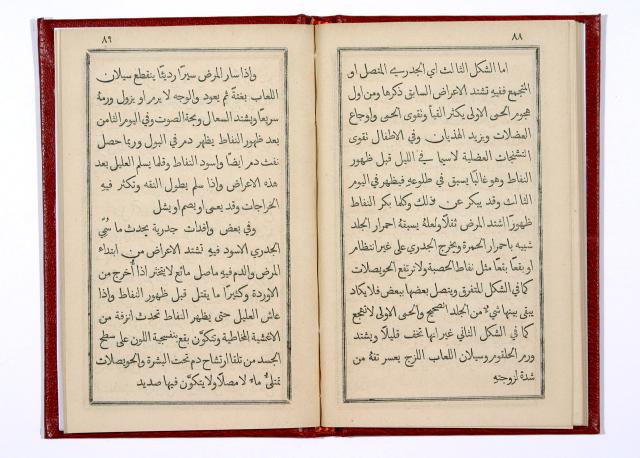 ٨٨
اما الشكل الثالث اي الجدري المتصل او
المتجمع ففيهِ تشتد الاعراض السابق ذكرها ومن اول
هجوم الحمى الاولى يكثر القيأ وتقوى الحمى واوجاع
العضلات ويزيد الهذيان وفي الاطفال تقوى
التشنجات العضلية لاسيما في الليل قبل ظهور
النفاط وهو غالبًا يسبق في طلوعهِ فيظهر في اليوم
الثالث وقد يبكر عن ذلك وكلما بكر النفاط
ظهورًا اشتد المرض ثقلًا ولعلهُ يسبقهُ احمرار الجلد
شبيه باحمرار الحمرة ويخرج الجدري على غير انتظام
او بقعًا بقعًا مثل نفاط الحصبة ولا ترتفع الحويصلات
كما في الشكل المتفرق ويتصل بعضها ببعض فلا يكاد
يبقى بينها شيء من الجلد الصحيح والحمى الاولى لا تهجع
كما في الشكل الثاني غير انها تخف قليلًا ويشتد
ورم الحلقوم وسيلان اللعاب اللزج يعسر تفهُ من
شدة لزوجتهِ
٨٩
واذا سار المرض سيرًا رديئًا ينقطع سيلان
اللعاب بغتةً ثم يعود والوجه لا يرم او يزول ورمهُ
سريعًا ويشتد السعال وبحة الصوت وفي اليوم الثامن
بعد ظهور النفاط يظهر دم في البول وربما حصل
نفث دم ايضًا واسود النفاط وقلما يسلم العليل بعد
هذه الاعراض واذا سلم يطول النقه وتكثر فيهِ
الخراجات وقد يعمى او يصم او يشل
وفي بعض وافدات جدرية يحدث ما سُمّي
الجدري الاسود فيهِ تشتد الاعراض من ابتداء
المرض والدم فيهِ ماصل مائع لا يتخثر اذا أُخرج من
الاوردة وكثيرًا ما يقتل قبل ظهور النفاط واذا
عاش العليل حتى يظهر النفاط تحدث انزفة من
الاغشية المخاطية وتتكوَّن بقع بنفسجية اللون على سطح
الجسد من تلقا ارتشاح دم تحت البشرة والحويصلات
تمتلئُ ماء لا مصلًا ولا يتكوَّن فيها صديد